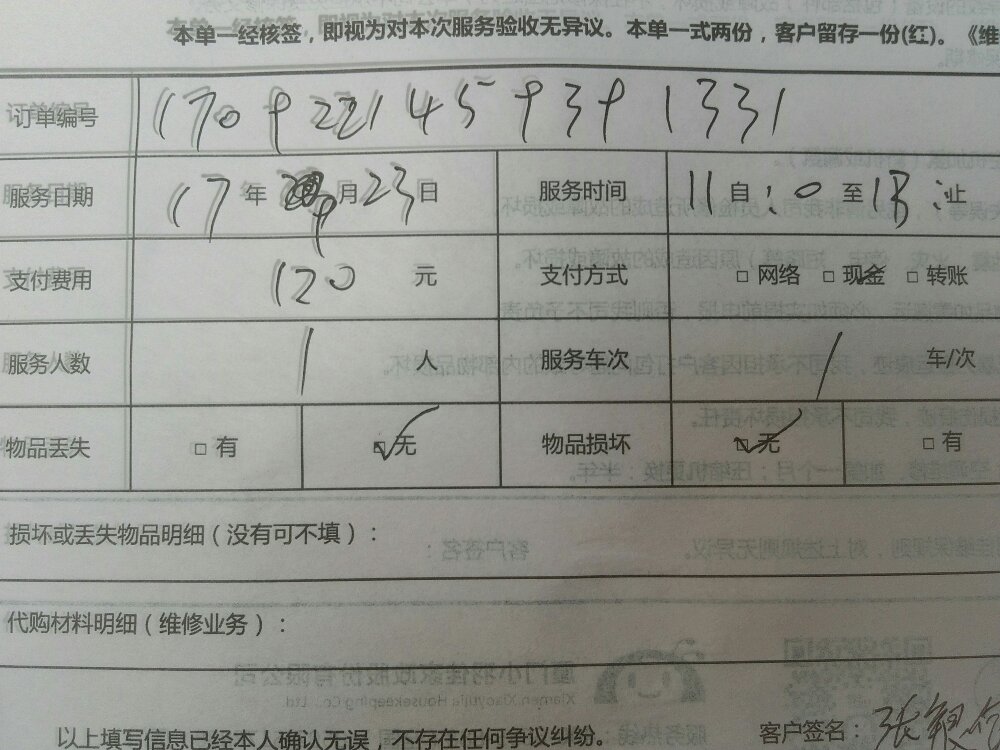 本单一经核签，即视为对本次服务验收无异议。本单一式两份，客户留存一份(红)。《维
订单编号 1709221459391331
服务日期 17年9月23日 服务时间 11自:0至13:止
支付费用 120元 支付方式 □网络 □现金 □转账
服务人数 1人 服务车次 1车/次
物品丢失 □有 ☑无 物品损坏 ☑无 □有
损坏或丢失物品明细（没有可不填）：
代购材料明细（维修业务）：
以上填写信息已经本人确认无误，不存在任何争议纠纷。
客户签名：张